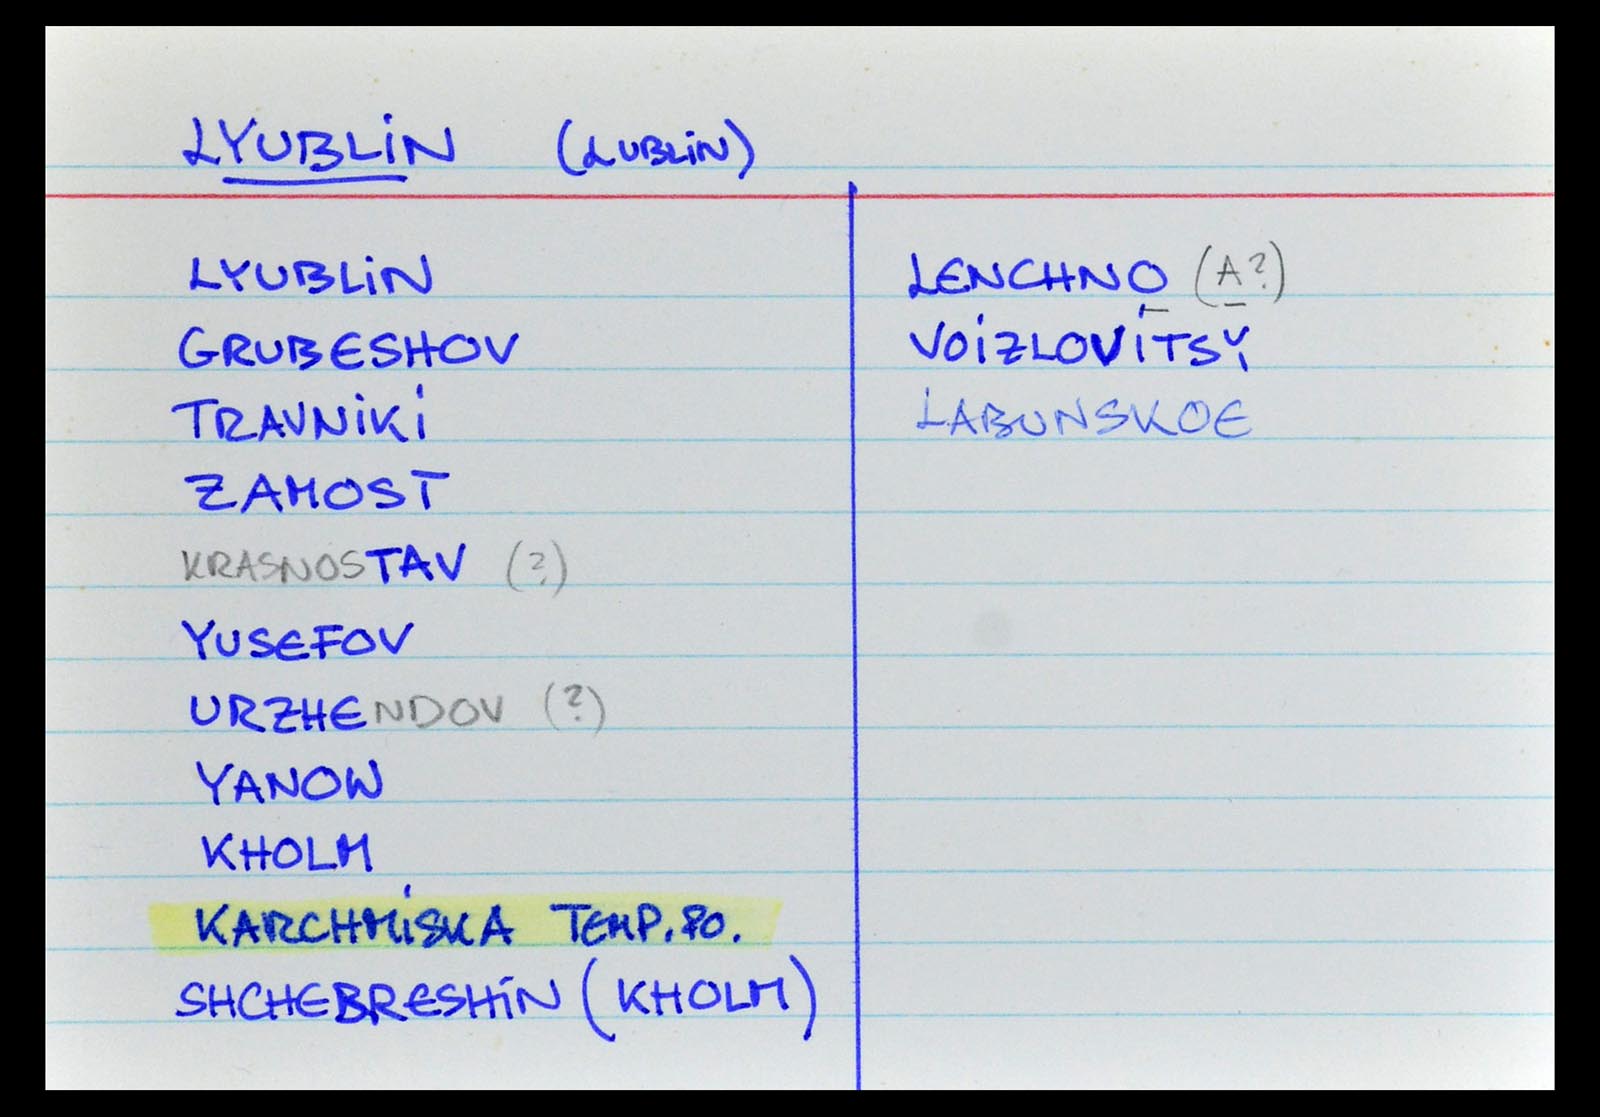 LYUBLIN (LUBLIN)
LYUBLIN
GRUBESHOV
TRAVNIKI
ZAMOST
KRASNOSTAV (?)
YUSEFOV
URZHENDOV (?)
YANOW
KHOLM
KARCHMISKA TEMP. PO.
SHCHEBRESHIN (KHOLM)
LENCHNO (A?)
VOIZLOVITSY
LABUNSKOE